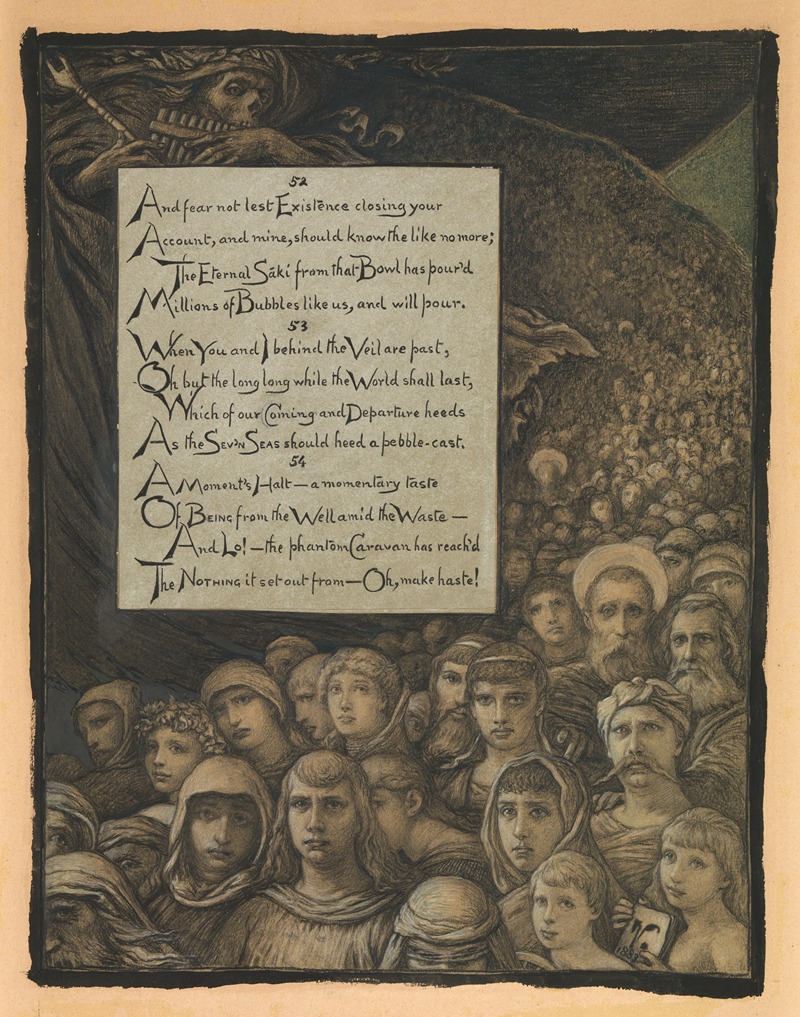 52
And fear not lest Existence closing your
Account, and mine, should know the like no more;
The Eternal Sākí from that Bowl has pour'd
Millions of Bubbles like us, and will pour.
53
When You and I behind the Veil are past,
Oh but the long long while the World shall last,
Which of our Coming and Departure heeds
As the SEV'N SEAS should heed a pebble-cast.
54
A Moment's Halt — a momentary taste
Of BEING from the Well amid the Waste —
And Lo! — the phantom Caravan has reach'd
The NOTHING it set out from — Oh, make haste!